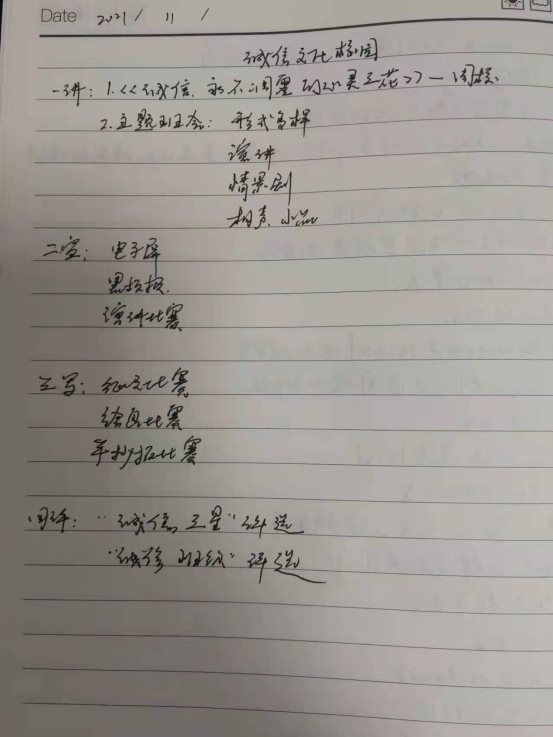 Date 2021 / 11 /
诚信文化校园
一讲：1.<<诚信，永不凋零的心灵之花>>—国旗
2.主题班会：形式多样
演讲
情景剧
相声、小品
二宣：电子屏
黑板报
演讲比赛
三写：征文比赛
绘画比赛
手抄报比赛
四评："诚信之星"评选
"诚信班级"评选